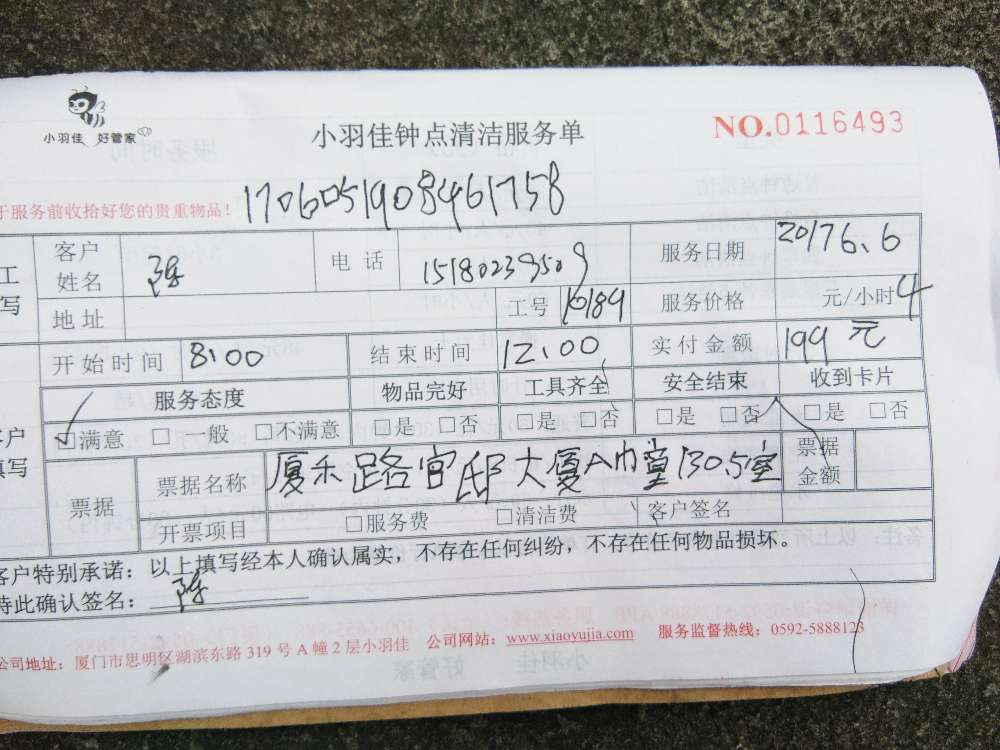 小羽佳 好管家
小羽佳钟点清洁服务单
NO.0116493
于服务前收拾好您的贵重物品!
1706051908461758
工 客户姓名 陈 电话 15180239509 服务日期 20176.6
写 地址 工号 10189 服务价格 元/小时 4
开始时间 8:00 结束时间 12:00 实付金额 199元
服务态度 物品完好 工具齐全 安全结束 收到卡片
客户 □满意 □一般 □不满意 □是 □否 □是 □否 □是 □否 □是 □否
填写 票据 票据名称 厦禾路官邸大厦A巾堂1305室 票据金额
开票项目 □服务费 □清洁费 客户签名
客户特别承诺：以上填写经本人确认属实，不存在任何纠纷，不存在任何物品损坏。
特此确认签名：陈
公司地址：厦门市思明区湖滨东路 319 号 A 幢 2 层小羽佳 公司网站：www.xiaoyujia.com 服务监督热线：0592-5888123